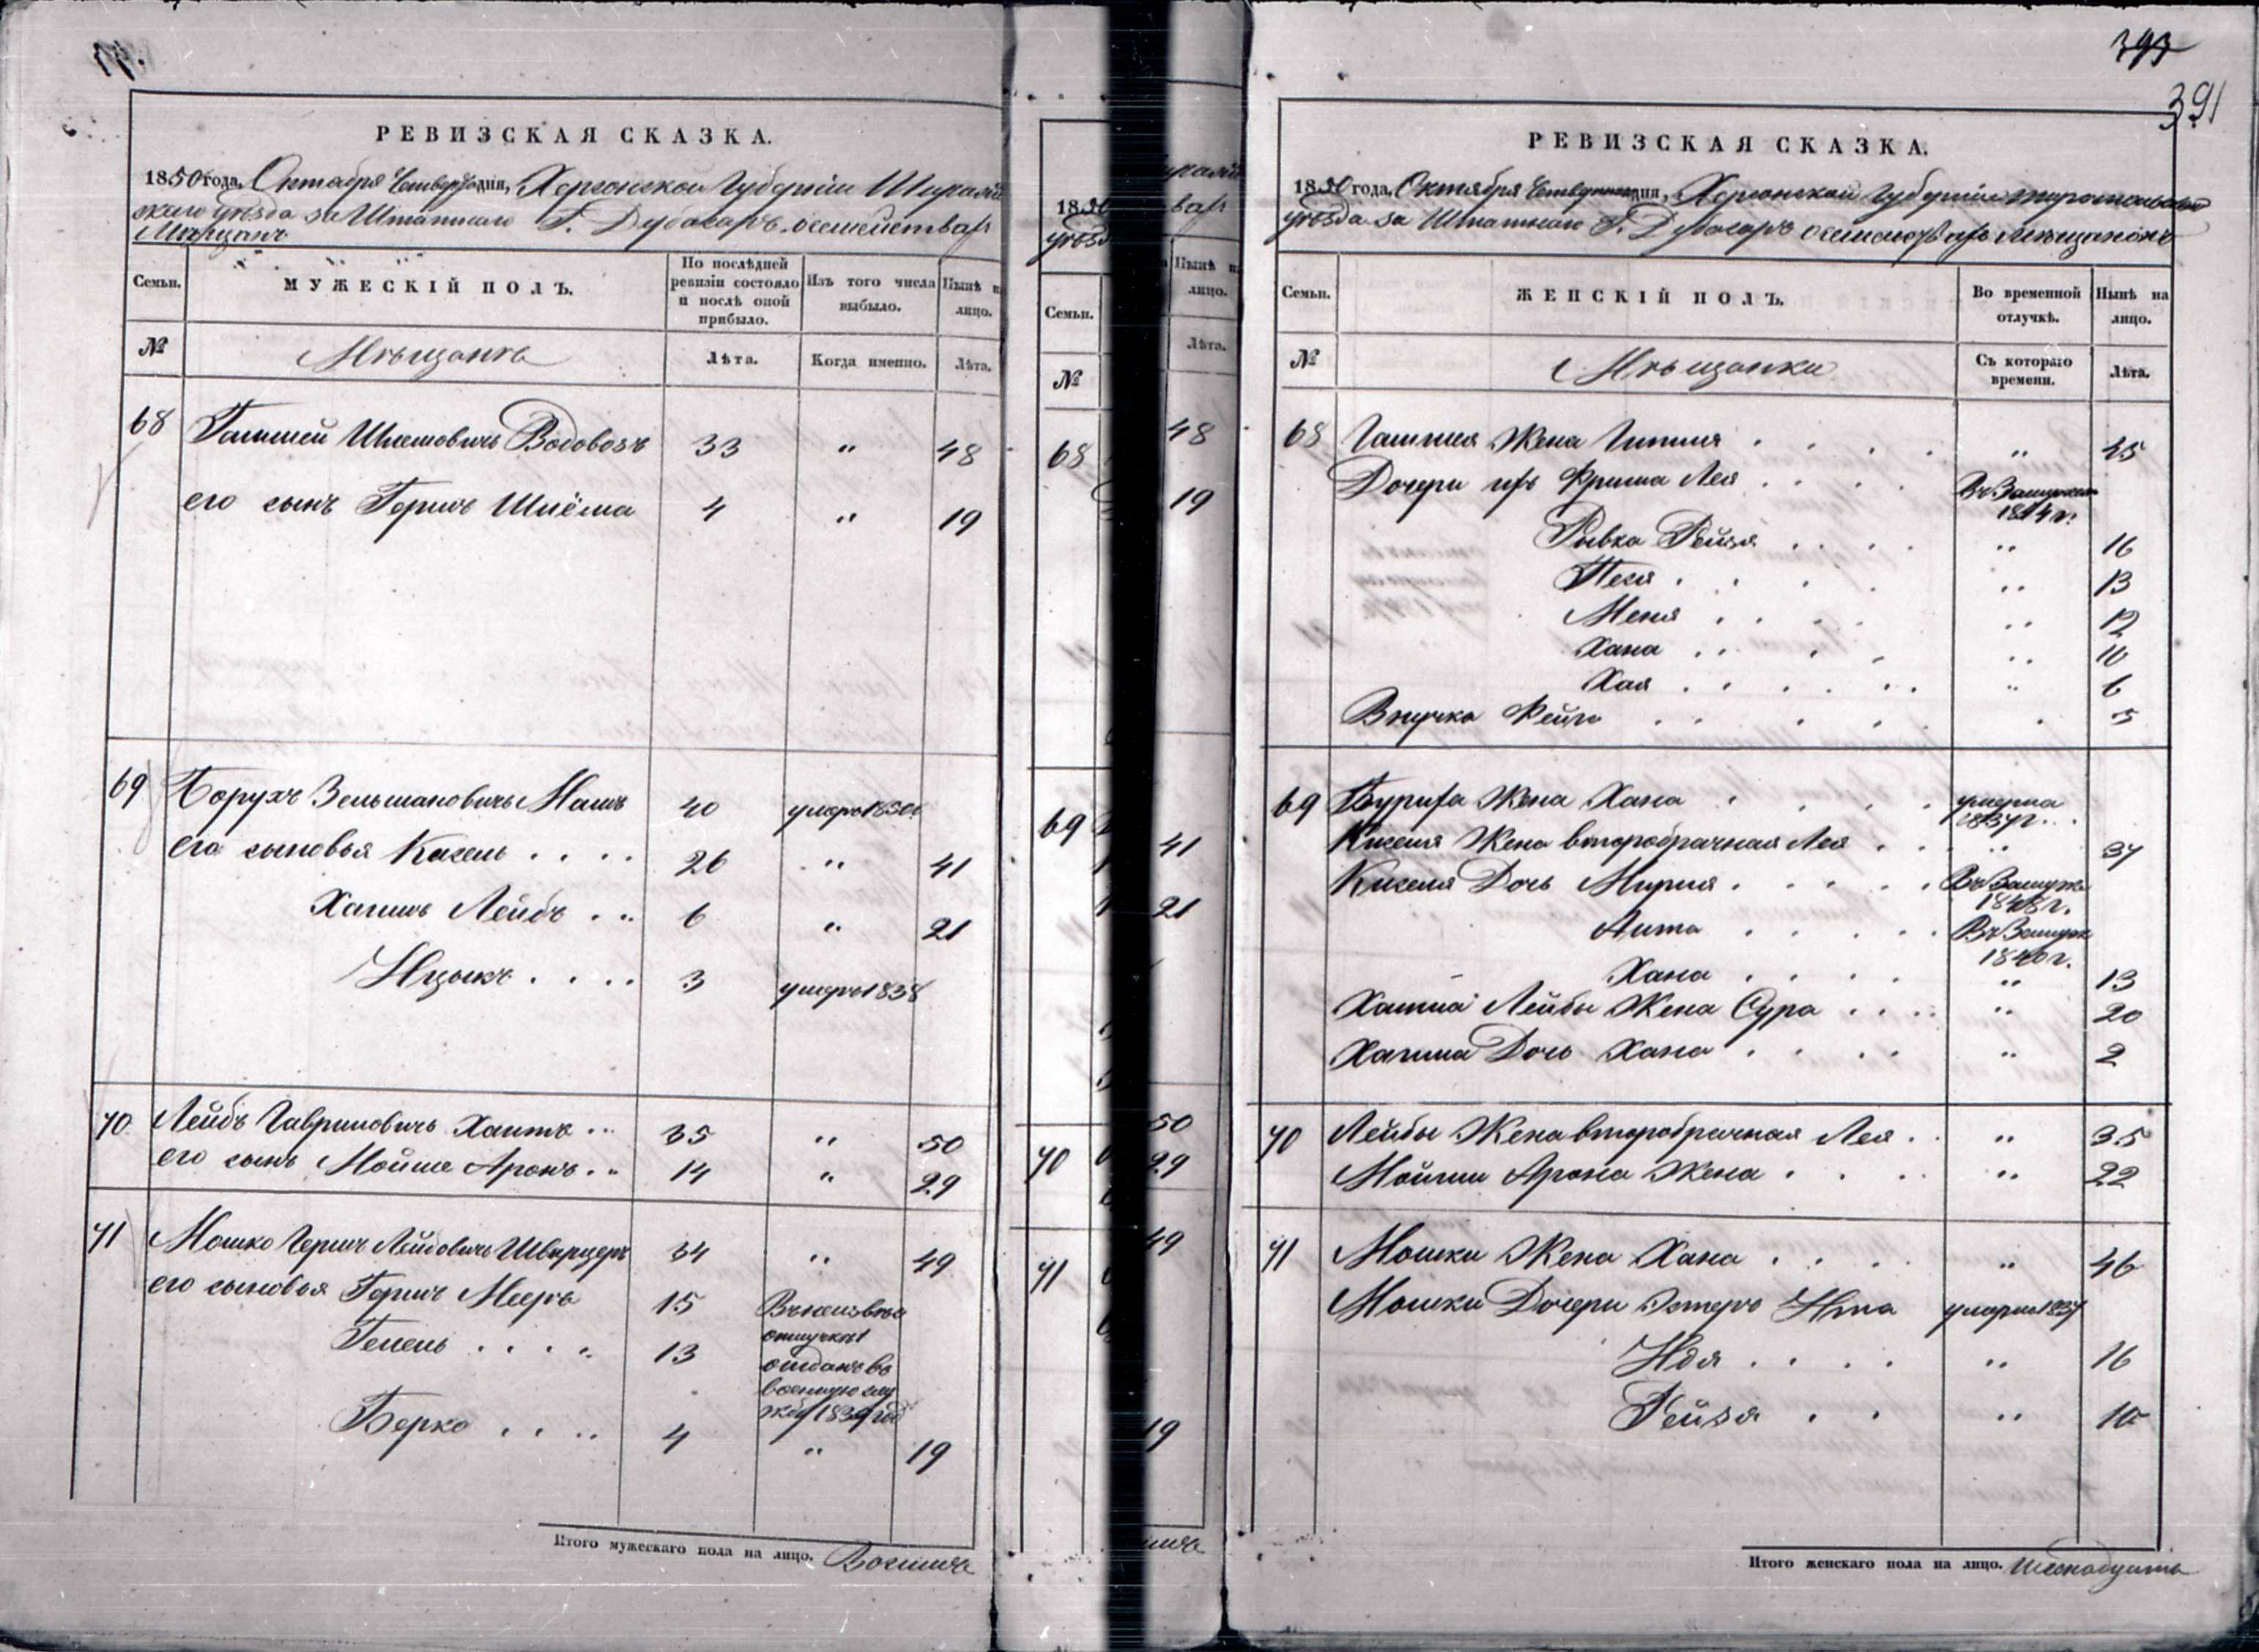 393
391
РЕВИЗСКАЯ СКАЗКА.
1850 года, Октября дня, Херсонской Губерніи
уѣзда за Штатнаго Г. Дубосаръ о семействахъ
Мѣщанъ
Семьи.
МУЖЕСКІЙ ПОЛЪ.
По послѣдней ревизіи состояло и послѣ оной прибыло.
Изъ того числа выбыло.
Нынѣ на лицо.
№
Мѣщанъ
Лѣта.
Когда именно.
Лѣта.
68 Шлемовичъ Водовозъ 33 " 48
его сынъ Гершъ Шлёма 4 " 19
69 Борухъ Зельмановичъ 40 умеръ 1850
его сыновья Кисель . . . . 26 " 41
Хаимъ Лейбъ . . 6 " 21
Ицыкъ . . . . 3 умеръ 1838
70 Лейбъ Гавриловичъ Хаитъ . . 35 " 50
его сынъ Мойше Аронъ . . 14 " 29
71 Мошко Гершъ Лейбовичъ Шварцеръ 34 " 49
его сыновья Гершъ Мееръ 15
отлучкѣ
13 отданъ въ
военную слу
жбу 1839 год
Берко . . . . 4 " 19
Итого мужескаго пола на лицо. Восемь
18
Семьи.
№
Нынѣ на лицо.
Лѣта.
68
48
19
69
41
21
70
50
29
71
49
19
РЕВИЗСКАЯ СКАЗКА.
1850 года, Октября дня, Херсонской Губерніи Тираспольскаго
уѣзда за Штатнаго Г. Дубосаръ о семействахъ мѣщанокъ
Семьи.
ЖЕНСКІЙ ПОЛЪ.
Во временной отлучкѣ.
Нынѣ на лицо.
№
Мѣщанки
Съ котораго времени.
Лѣта.
68 Жена . . . . " 45
Дочери ихъ Фрима Лея . . . . Въ Замужест
1844 г.
Рывка Рейзя . . . . " 16
Песя . . . . " 13
Меня . . . . " 12
Хана . . . . " 10
Хая . . . . . . " 6
Внучка Фейга . . . . . 5
69 Бориха Жена Хана . . . . умерла
1837 г. . .
Киселя Жена второбрачная Лея . . " 37
Киселя Дочь Мирля . . . . . Въ Замуж
1848 г.
. . . . . Въ Замуж
1840 г.
Хана . . . . " 13
Хаима Лейбы Жена Сура . . . . " 20
Хаима Дочь Хана . . . . " 2
70 Лейбы Жена второбрачная Лея . . " 35
Мойши Арона Жена . . . . " 22
71 Мошки Жена Хана . . . . " 46
Мошки Дочери Эстеръ умерла 1837
Идя . . . . " 16
Рейзя . . " 10
Итого женскаго пола на лицо. Шеснадцать